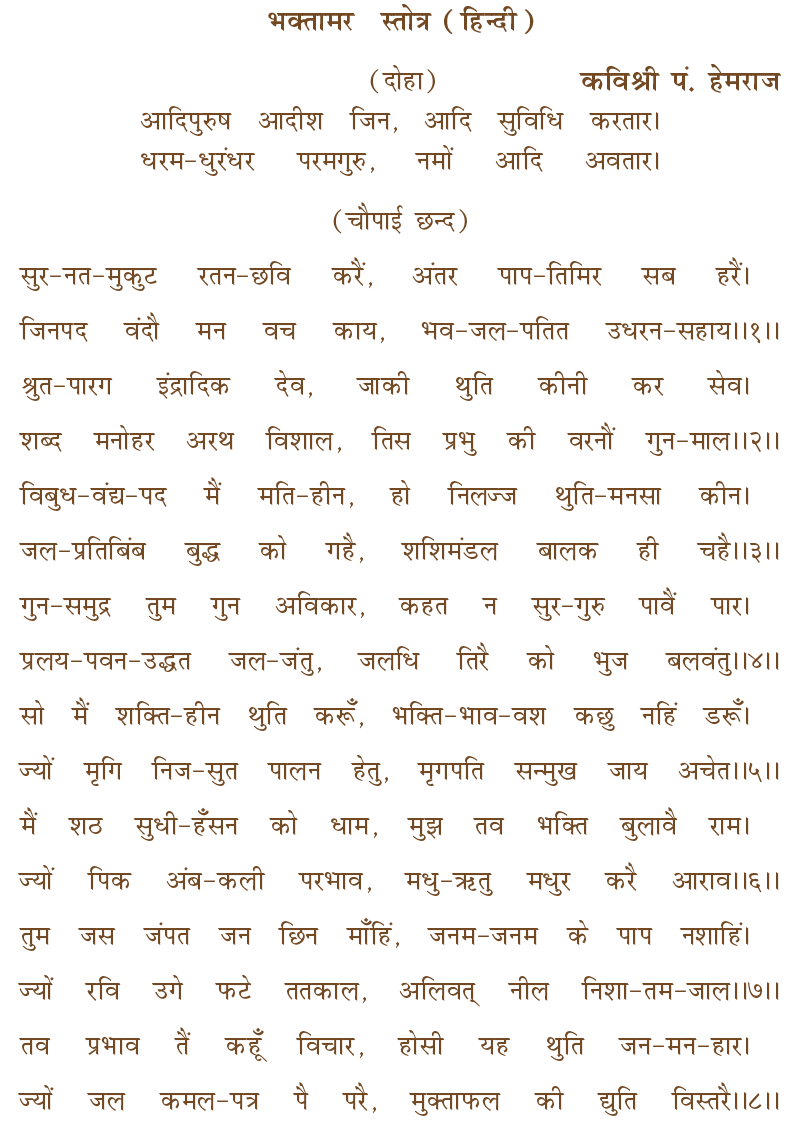 भक्तामर स्तोत्र (हिन्दी)
(दोहा) कविश्री पं. हेमराज
आदिपुरुष आदीश जिन, आदि सुविधि करतार।
धरम-धुरंधर परमगुरु, नमों आदि अवतार।
(चौपाई छन्द)
सुर-नत-मुकुट रतन-छवि करैं, अंतर पाप-तिमिर सब हरैं।
जिनपद वंदौं मन वच काय, भव-जल-पतित उधरन-सहाय।।१।।
श्रुत-पारग इंद्रादिक देव, जाकी थुति कीनी कर सेव।
शब्द मनोहर अरथ विशाल, तिस प्रभु की वरनौं गुन-माल।।२।।
विबुध-वंद्य-पद मैं मति-हीन, हो निलज्ज थुति-मनसा कीन।
जल-प्रतिबिंब बुद्ध को गहै, शशिमंडल बालक ही चहै।।३।।
गुन-समुद्र तुम गुन अविकार, कहत न सुर-गुरु पावैं पार।
प्रलय-पवन-उद्धत जल-जंतु, जलधि तिरै को भुज बलवंतु।।४।।
सो मैं शक्ति-हीन थुति करूँ, भक्ति-भाव-वश कछु नहिं डरूँ।
ज्यों मृगि निज-सुत पालन हेतु, मृगपति सन्मुख जाय अचेत।।५।।
मैं शठ सुधी-हँसन को धाम, मुझ तव भक्ति बुलावै राम।
ज्यों पिक अंब-कली परभाव, मधु-ऋतु मधुर करै आराव।।६।।
तुम जस जंपत जन छिन माँहिं, जनम-जनम के पाप नशाहिं।
ज्यों रवि उगे फटे ततकाल, अलिवत् नील निशा-तम-जाल।।७।।
तव प्रभाव तैं कहूँ विचार, होसी यह थुति जन-मन-हार।
ज्यों जल कमल-पत्र पै परै, मुक्ताफल की द्युति विस्तरै।।८।।